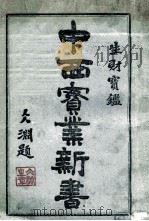 生財寶鑑
中西實業新書
淵題